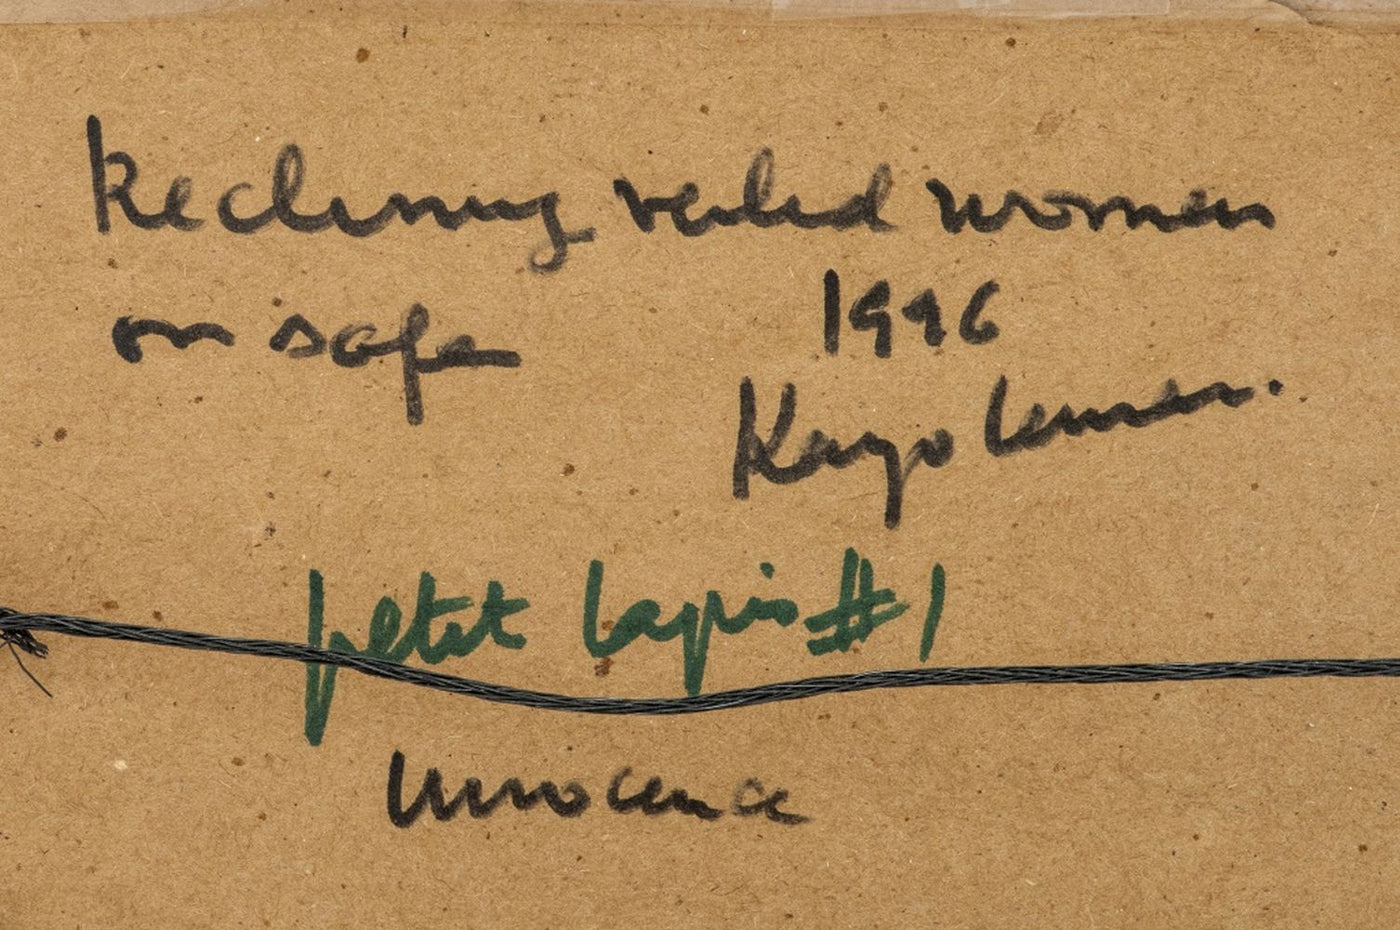 Reclining veiled women
on safe
1996
Kayo Lennar.
petit Lapis #1
Innocence